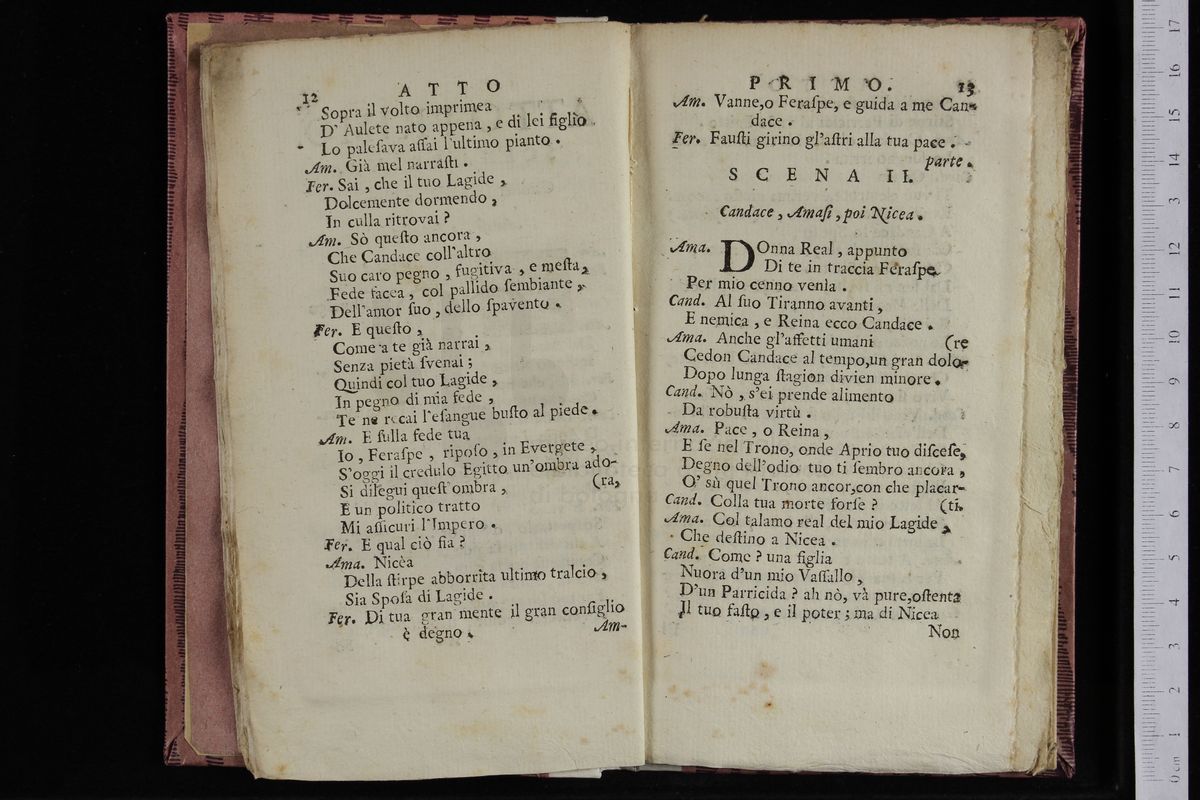 12
ATTO
Sopra il volto imprimea
D' Aulete nato appena, e di lei figlio
Lo palesava assai l'ultimo pianto.
Am. Già mel narrasti.
Fer. Sai, che il tuo Lagide,
Dolcemente dormendo,
In culla ritrovai?
Am. Sò questo ancora,
Che Candace coll'altro
Suo caro pegno, fugitiva, e mesta,
Fede facea, col pallido sembiante,
Dell'amor suo, dello spavento.
Fer. E questo,
Come a te già narrai,
Senza pietà svenai;
Quindi col tuo Lagide,
In pegno di mia fede,
Te ne recai l'esangue busto al piede.
Am. E sulla fede tua
Io, Feraspe, riposo, in Evergete,
S'oggi il credulo Egitto un'ombra ado-
Si dilegui quest'ombra, (ra,
E un politico tratto
Mi assicuri l'Impero.
Fer. E qual ciò sia?
Ama. Nicèa
Della stirpe abborrita ultimo tralcio,
Sia Sposa di Lagide.
Fer. Di tua gran mente il gran consiglio
è degno.
Am-
PRIMO.
13
Am. Vanne, o Feraspe, e guida a me Can-
dace.
Fer. Fausti girino gl'astri alla tua pace.
parte.
SCENA II.
Candace, Amasi, poi Nicea.
Ama. DOnna Real, appunto
Di te in traccia Feraspe
Per mio cenno venia.
Cand. Al suo Tiranno avanti,
E nemica, e Reina ecco Candace.
Ama. Anche gl'affetti umani (re
Cedon Candace al tempo, un gran dolo-
Dopo lunga stagion divien minore.
Cand. Nò, s'ei prende alimento
Da robusta virtù.
Ama. Pace, o Reina,
E se nel Trono, onde Aprio tuo discese,
Degno dell'odio tuo ti sembro ancora,
O' sù quel Trono ancor, con che placar-
Cand. Colla tua morte forse? (ti.
Ama. Col talamo real del mio Lagide,
Che destino a Nicea.
Cand. Come? una figlia
Nuora d'un mio Vassallo,
D'un Parricida? ah nò, và pure, ostenta
Il tuo fasto, e il poter; ma di Nicea
Non
0 cm 1 2 3 4 5 6 7 8 9 10 11 12 13 14 15 16 17